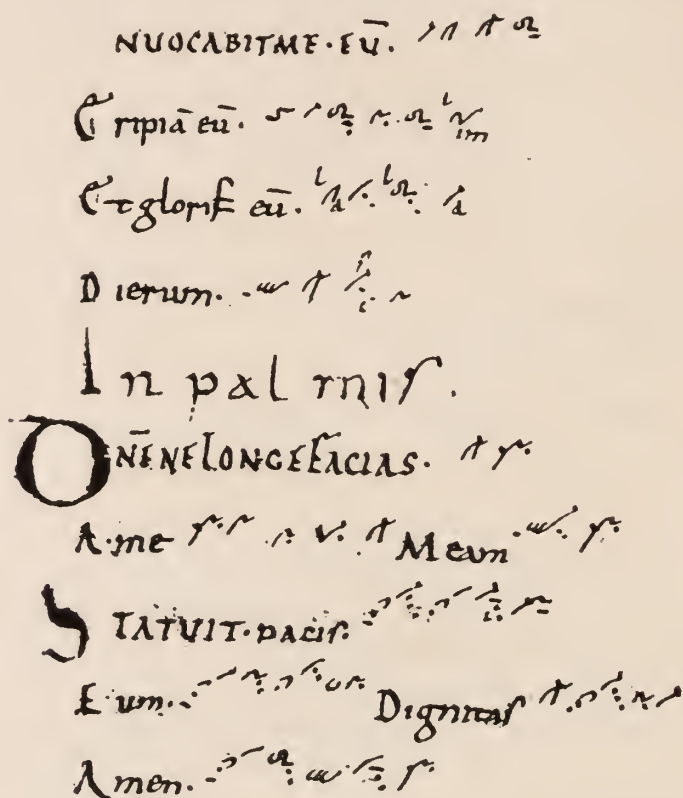 NUOCABITME·EŪ.
Eripiā eū.
Et glorif eū.
Dierum.
In palmis.
DNĒNELONGEFACIAS.
A·me Meum
STATUIT·pacis.
Eum. Dignitas
Amen.